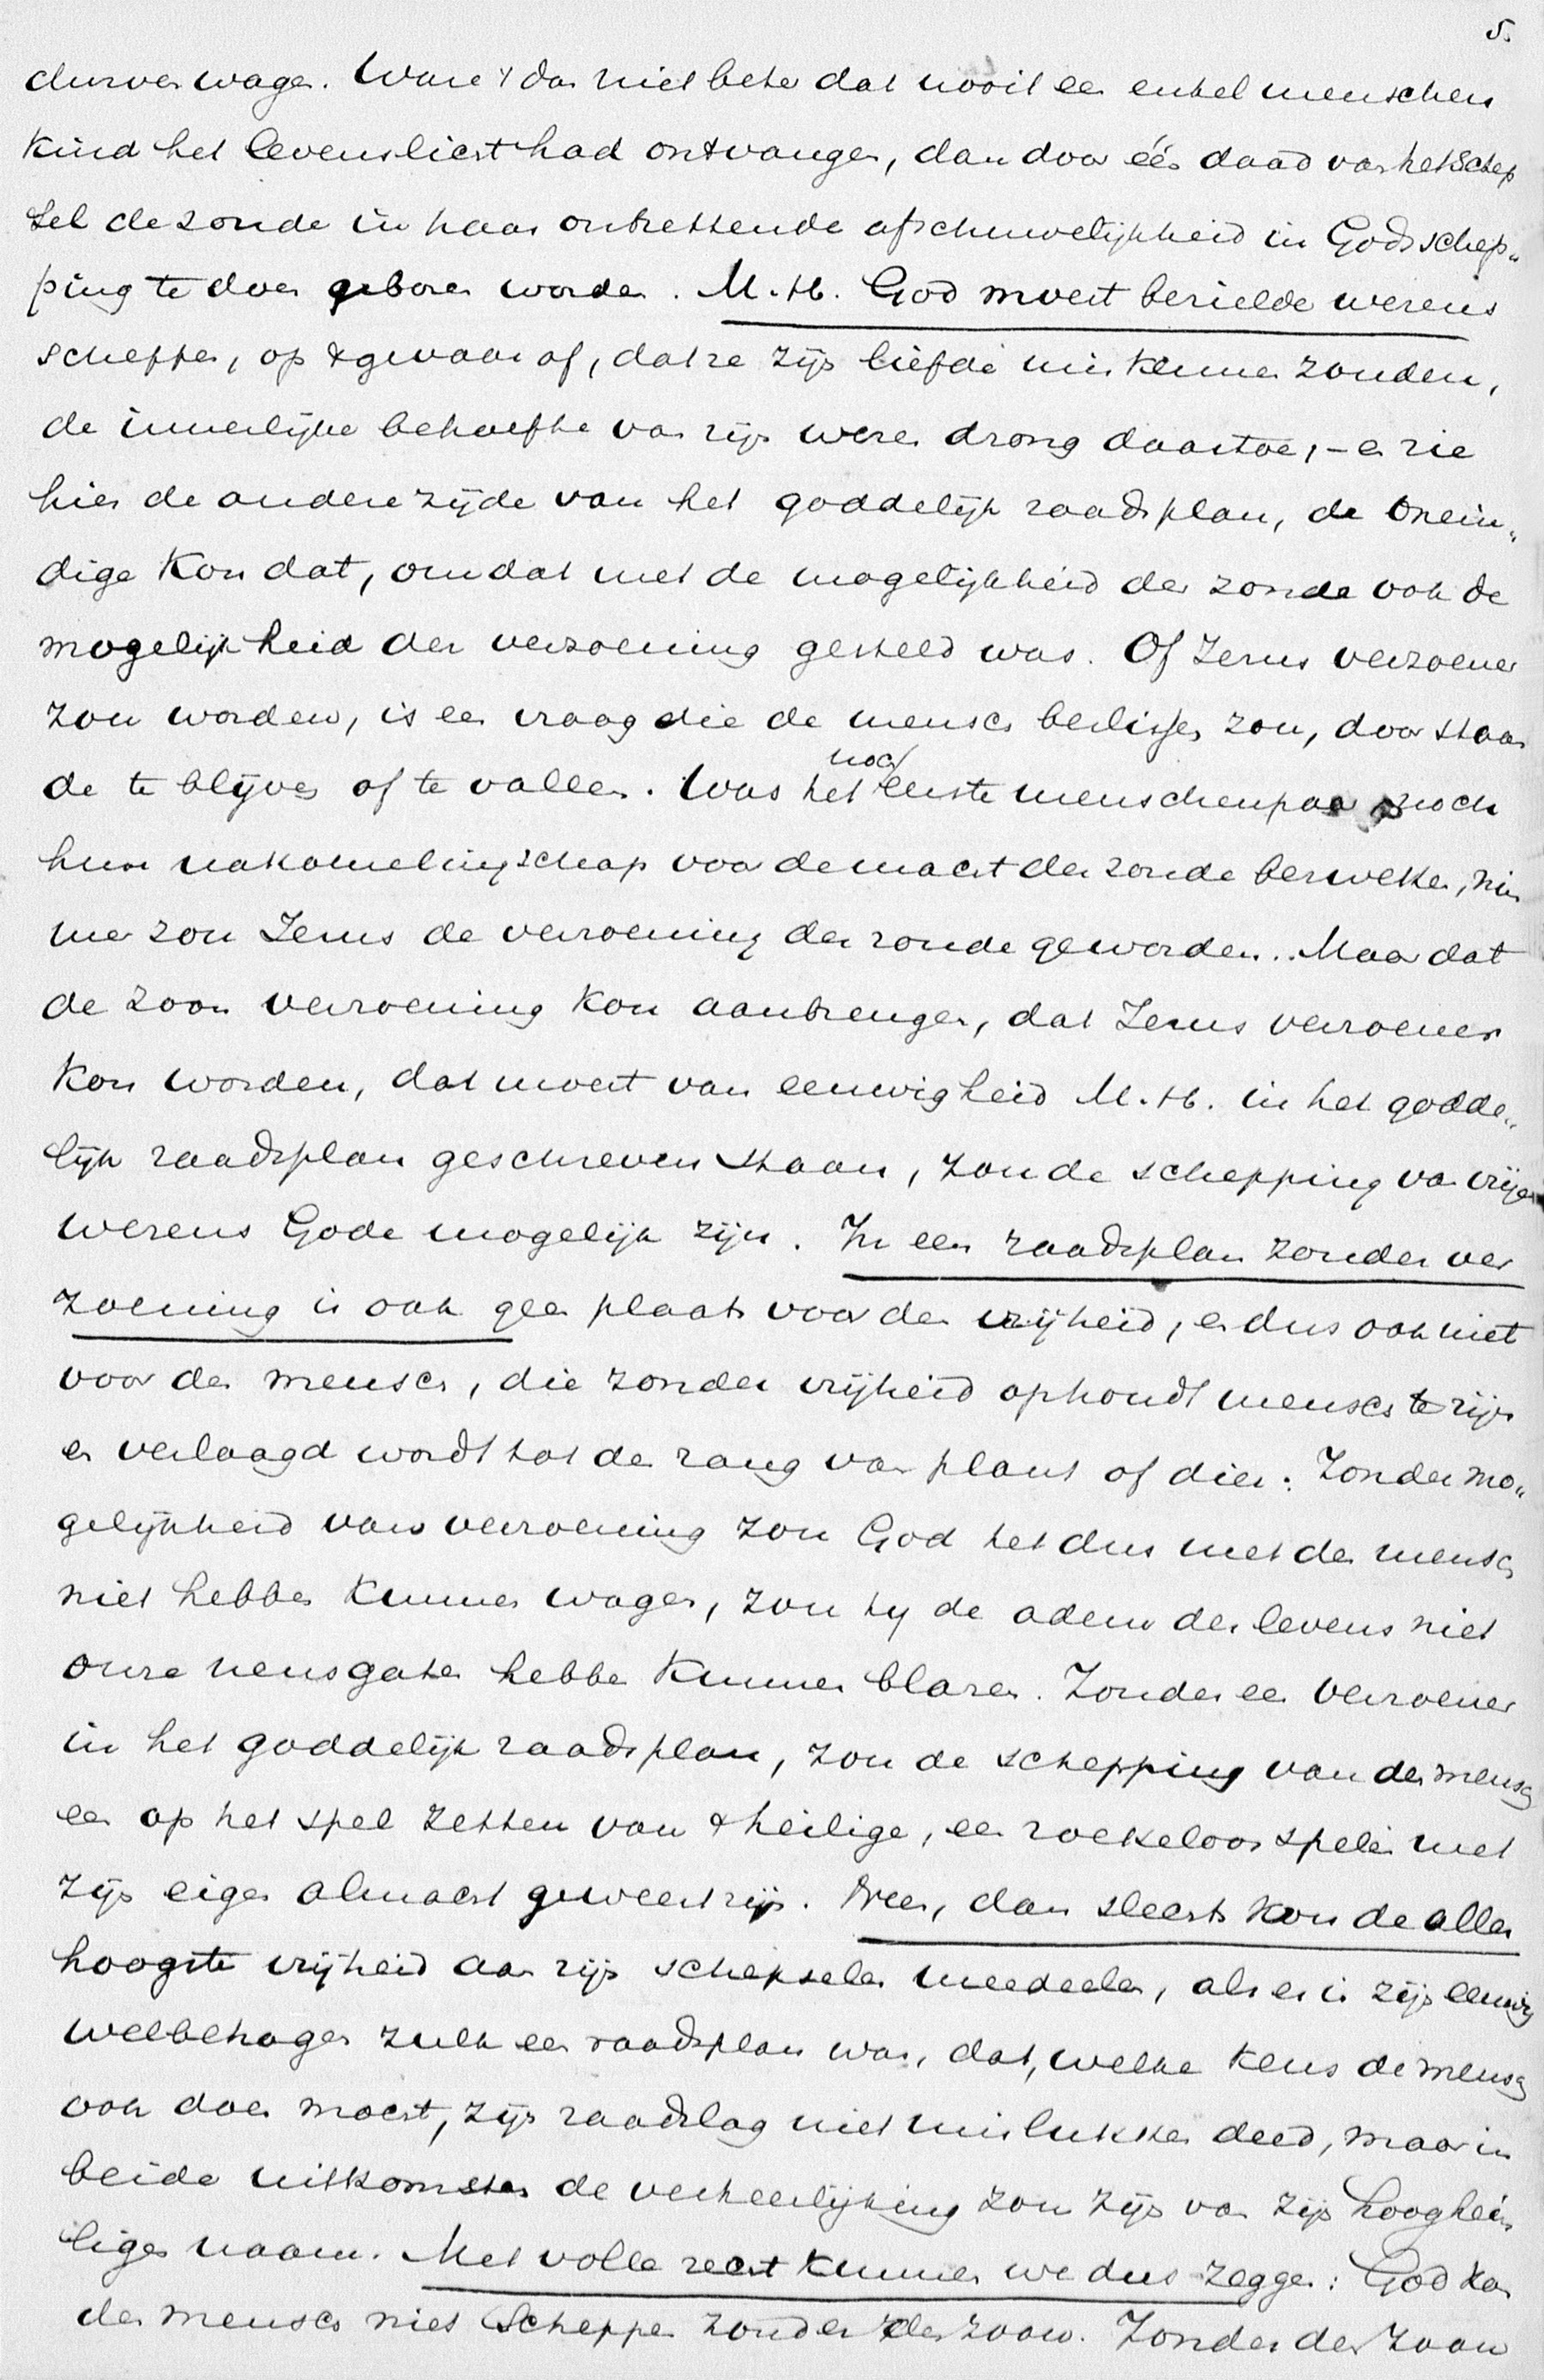 5.
durven wagen. Ware 't dan niet beter dat nooit een enkel menschen
kind het levenslicht had ontvangen, dan door één daad van het schep
sel de zonde in haar ontzettende afschuwelijkheid in Gods schep„
ping te doen geboren worden. M.H. God moest bezielde wezens
scheppen, op 't gevaar af, dat ze zijn liefde miskennen zouden,
de innerlijke behoefte van zijn wezen drong daartoe, – en zie
hier de andere zijde van het goddelijk raadsplan, de Onein„
dige kon dat, omdat met de mogelijkheid der zonde ook de
mogelijkheid der verzoening gesteld was. Of Jezus verzoener
zou worden, is een vraag die de mensch beslissen zou, door staan
de te blijven of te vallen. Was het noch eerste menschenpaar noch
hun nakomelingschap voor de macht der zonde bezweken, nim
mer zou Jezus de verzoening der zonde geworden.. Maar dat
de zoon verzoening kon aanbrengen, dat Jezus verzoener
kon worden, dat moest van eeuwigheid M.H. in het godde„
lijk raadsplan geschreven staan, zou de schepping van vrije
wezens Gode mogelijk zijn. In een raadsplan zonder ver
zoening is ook geen plaats voor den vrijheid, en dus ook niet
voor den mensch, die zonder vrijheid ophoudt mensch te zijn
en verlaagd wordt tot den rang van plant of dier. Zonder mo„
gelijkheid van verzoening zou God het dus met den mensch
niet hebben kunnen wagen, zou hij de adem des levens niet
onze neusgaten hebben kunnen blazen. Zonder een verzoener
in het goddelijk raadsplan, zou de schepping van den mensch
een op het spel zetten van 't heilige, een roekeloos spelen met
zijn eigen almacht geweest zijn. Neen, dan slechts kon de aller
hoogste vrijheid aan zijn schepselen meedeelen, als er in zijn eeuwig
welbehagen zulk een raadsplan was, dat, welke keus de mensch
ook doen mocht, zijn raadslag niet mislukken deed, maar in
beide uitkomsten de verheerlijking zou zijn van zijn hooghei„
ligen naam. Met volle recht kunnen we dus zeggen: God kon
den mensch niet scheppen zonder den zoon. Zonder den zoon